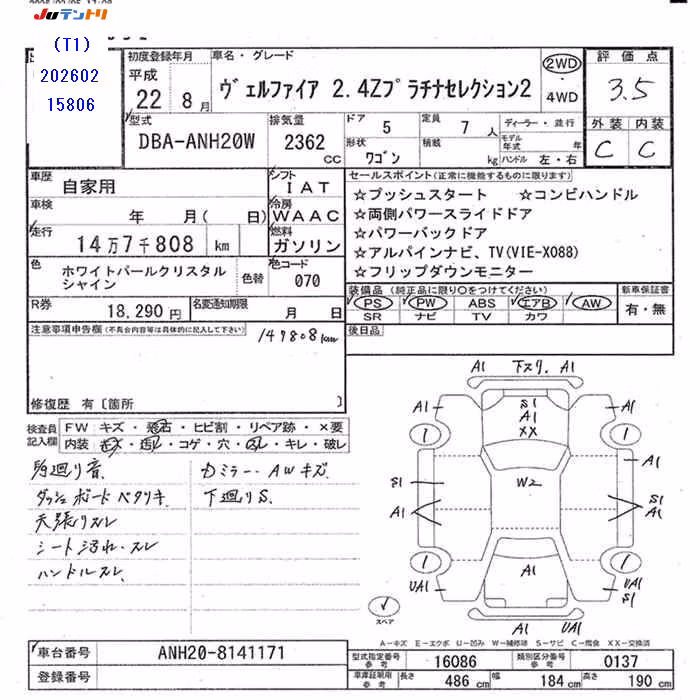 Juテントリ
(T1)
202602
15806
初度登録年月
平成
22 8月
車名・グレード
ヴェルファイア 2.4Zプラチナセレクション2
2WD
・
4WD
評価点
3.5
外装 内装
C C
型式
DBA-ANH20W
排気量
2362
CC
ドア
5
形状
ワゴン
定員
7 人
積載
kg
ディーラー・並行
モデル年式 年
ハンドル 左・右
車歴
自家用
シフト
IAT
車検
年 月( 日)
冷房
WAAC
走行
14万7千808 km
燃料
ガソリン
色
ホワイトパールクリスタル
シャイン
色替
色コード
070
R券
18,290円
名変通知期限
月 日
セールスポイント(正常に機能するものに限ります)
☆プッシュスタート ☆コンビハンドル
☆両側パワースライドドア
☆パワーバックドア
☆アルパインナビ、TV(VIE-X088)
☆フリップダウンモニター
装備品(純正品に限り○をつけてください)
PS PW ABS エアB AW
SR ナビ TV カワ
新車保証書
有・無
後日品
注意事項申告欄(不具合内容等は具体的に記入して下さい)
147808km
修復歴 有〔箇所 〕
検査員
記入欄
FW キズ・飛石・ヒビ割・リペア跡・×要
内装 キズ・汚レ・コゲ・穴・スレ・キレ・破レ
足廻り音
ダッシュボードベタツキ
天張りスレ
シート汚れ・スレ
ハンドルスレ
カミラー・AWキズ
下廻りS
A1 下スリ. A1
A1
S1
A1
XX
A1
1
1
A1
S1
A1
W2
S1
A1
1
1
UA1
A1
UA1
S1
A1 UA1
スペア
A-キズ E-エクボ U-凹み W-補修跡 S-サビ C-腐食 XX-交換済
車台番号
ANH20-8141171
登録番号
型式指定番号
参考
16086
類別区分番号
参考
0137
車庫証明用
参考
長さ
486 cm
幅
184 cm
高さ
190 cm